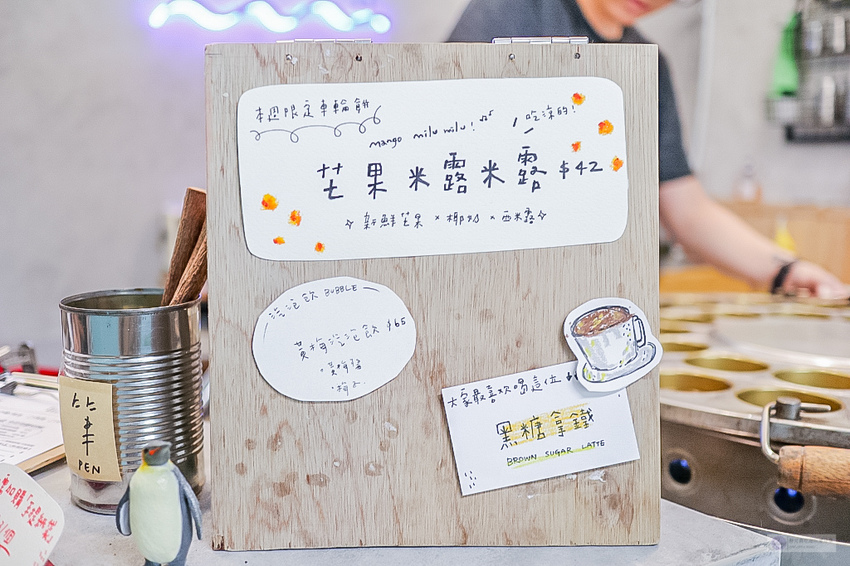 本週限定車輪餅
mango milu milu!
吃涼的!
芒果米露米露 $42
新鮮芒果 × 椰奶 × 西米露
泡泡飲 BUBBLE
黃梅泡泡飲 $65
大家最喜歡喝這位
黑糖拿鐵
BROWN SUGAR LATTE
筆
PEN